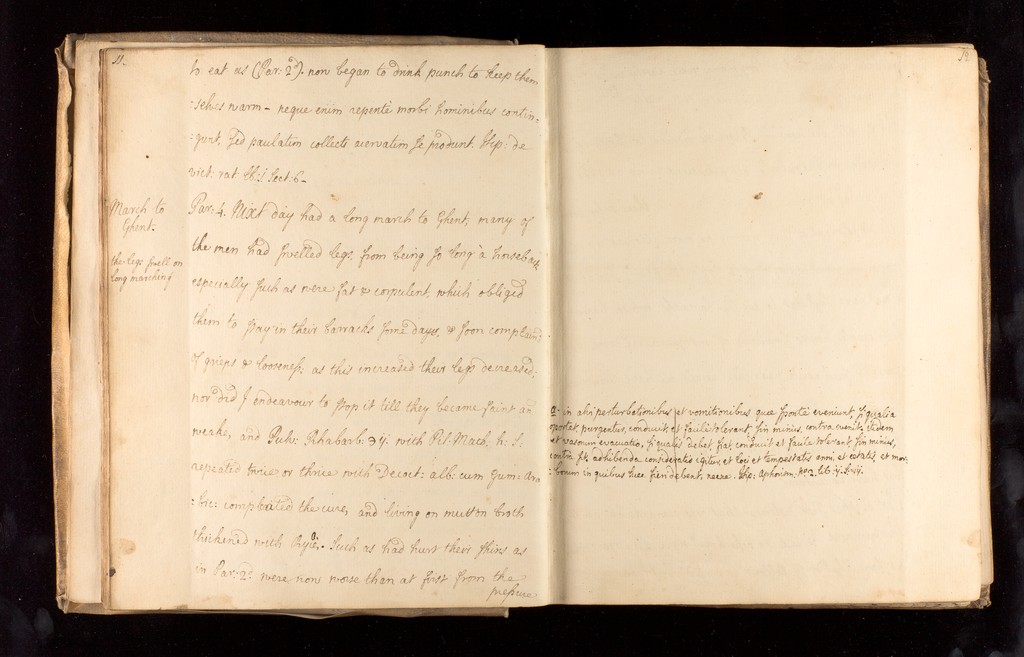 11.
to eat us (Par: 2d). now began to drink punch to keep them
:selves warm – neque enim repente morbi hominibus contin-
:gunt, sed paulatim collecti acervatim se produnt. Hip: de
vict: rat lib: 1 Sect: 6 –
March to
Ghent.
the legs swell on
long marching
Par: 4. Next day had a long march to Ghent, many of
the men had swelled legs, from being so long à horseback
especially such as were fat & corpulent, which obliged
them to stay in their barracks some days, & soon complain'd
of gripes & looseness: as this increased their legs decreased;
nor did I endeavour to stop it till they became faint an
weake, and Pulv: Rhabarb: ℈j. with Pil: Math. h: S:
repeated twice or thrice with Decoct: alb: cum Gum: Ara
:bic: compleated the cure, and living on mutton broth
thickened with Ryce. Such as had hurt their shins as
in Par: 2d. were now worse than at first from the
pressure
12
a – in alvi perturbationibus et vomitionibus quae sponte eveniunt, si qualia
oportet, purgentur, conducit et facile tolerant, sin minus, contra evenit, itidem
et vasorum evacuatio, si qualis debet, fiat, conducit et facile tolerant, sin minus,
contra fit, adhibenda consideratio igitur et loci et tempestatis anni, et aetatis, et mor-
:borum in quibus haec fieri debent, necne. Hip: Aphorism: